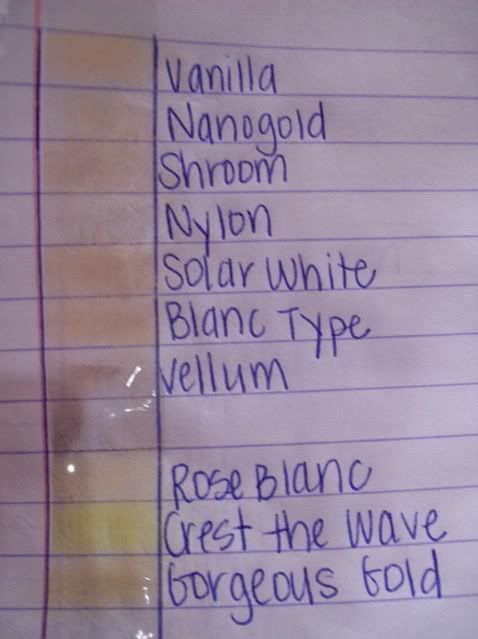 Vanilla
Nanogold
Shroom
Nylon
Solar White
Blanc Type
Vellum
Rose Blanc
Crest the Wave
Gorgeous Gold